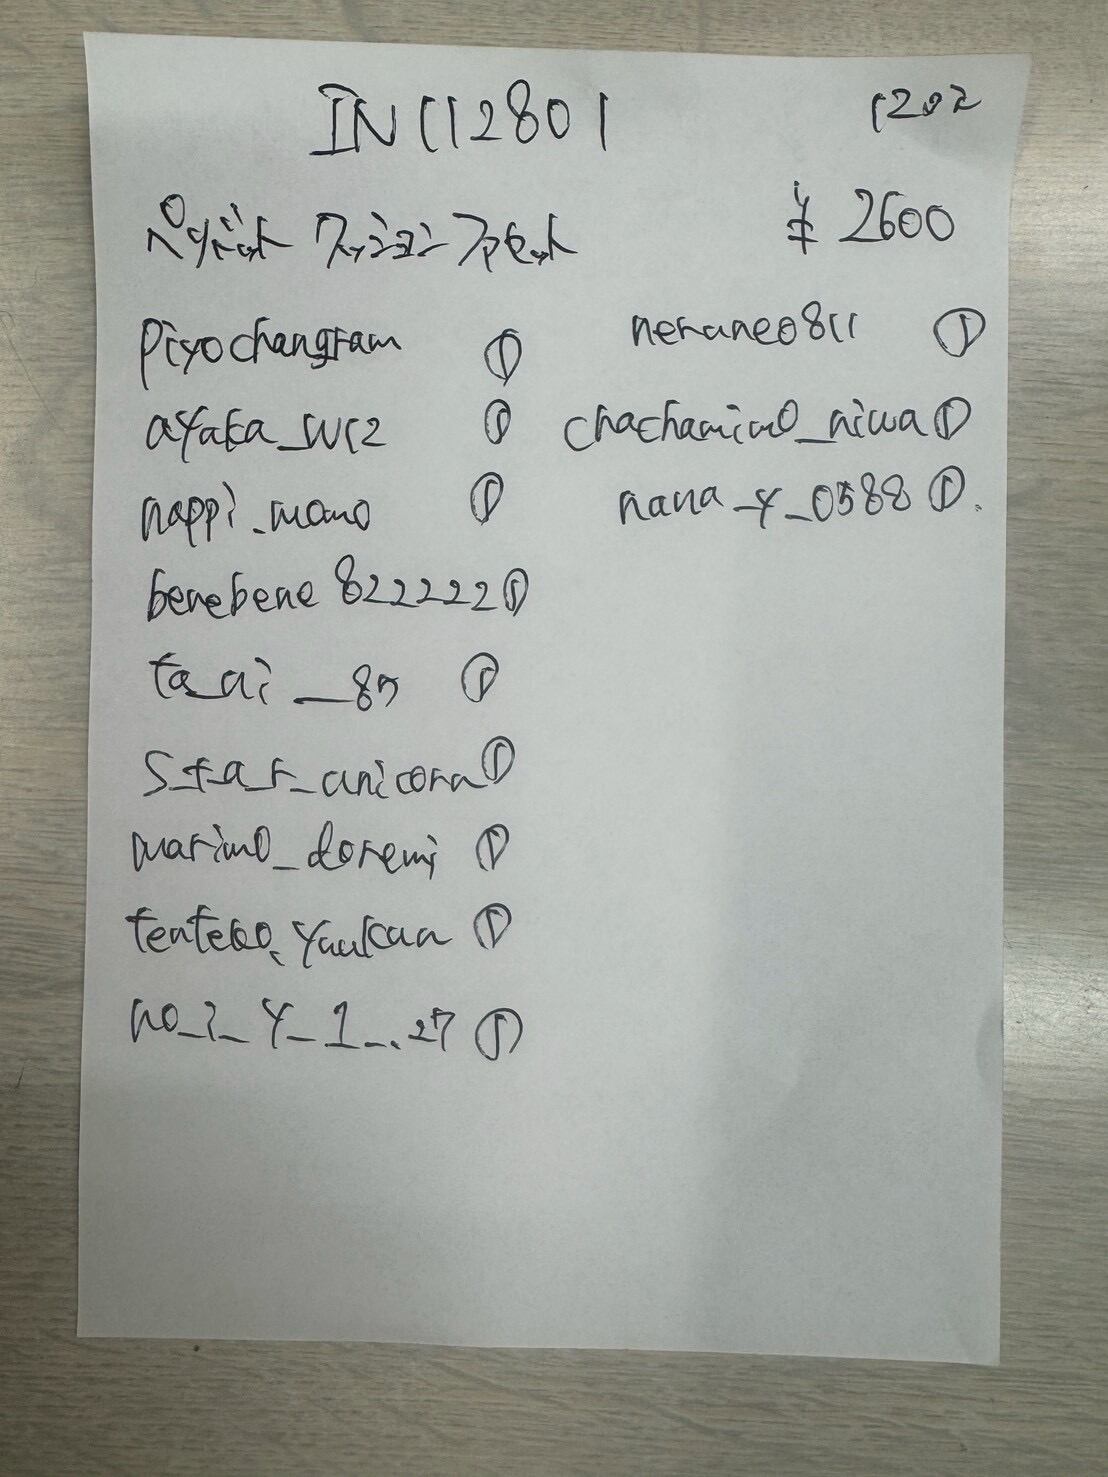 IN112801
1202
ペットベット クッションファセット
¥2600
piyochangram ①
ayaka_w12 ①
nappi_momo ①
benebene822222 ①
ta_ni__87 ①
s_t_a_r_unicorn ①
marimo_doremi ①
tenteko_yuukun ①
no_i_y_1_.27 ①
neruneo811 ①
chachamimo_niwa ①
nana_y_0588 ①